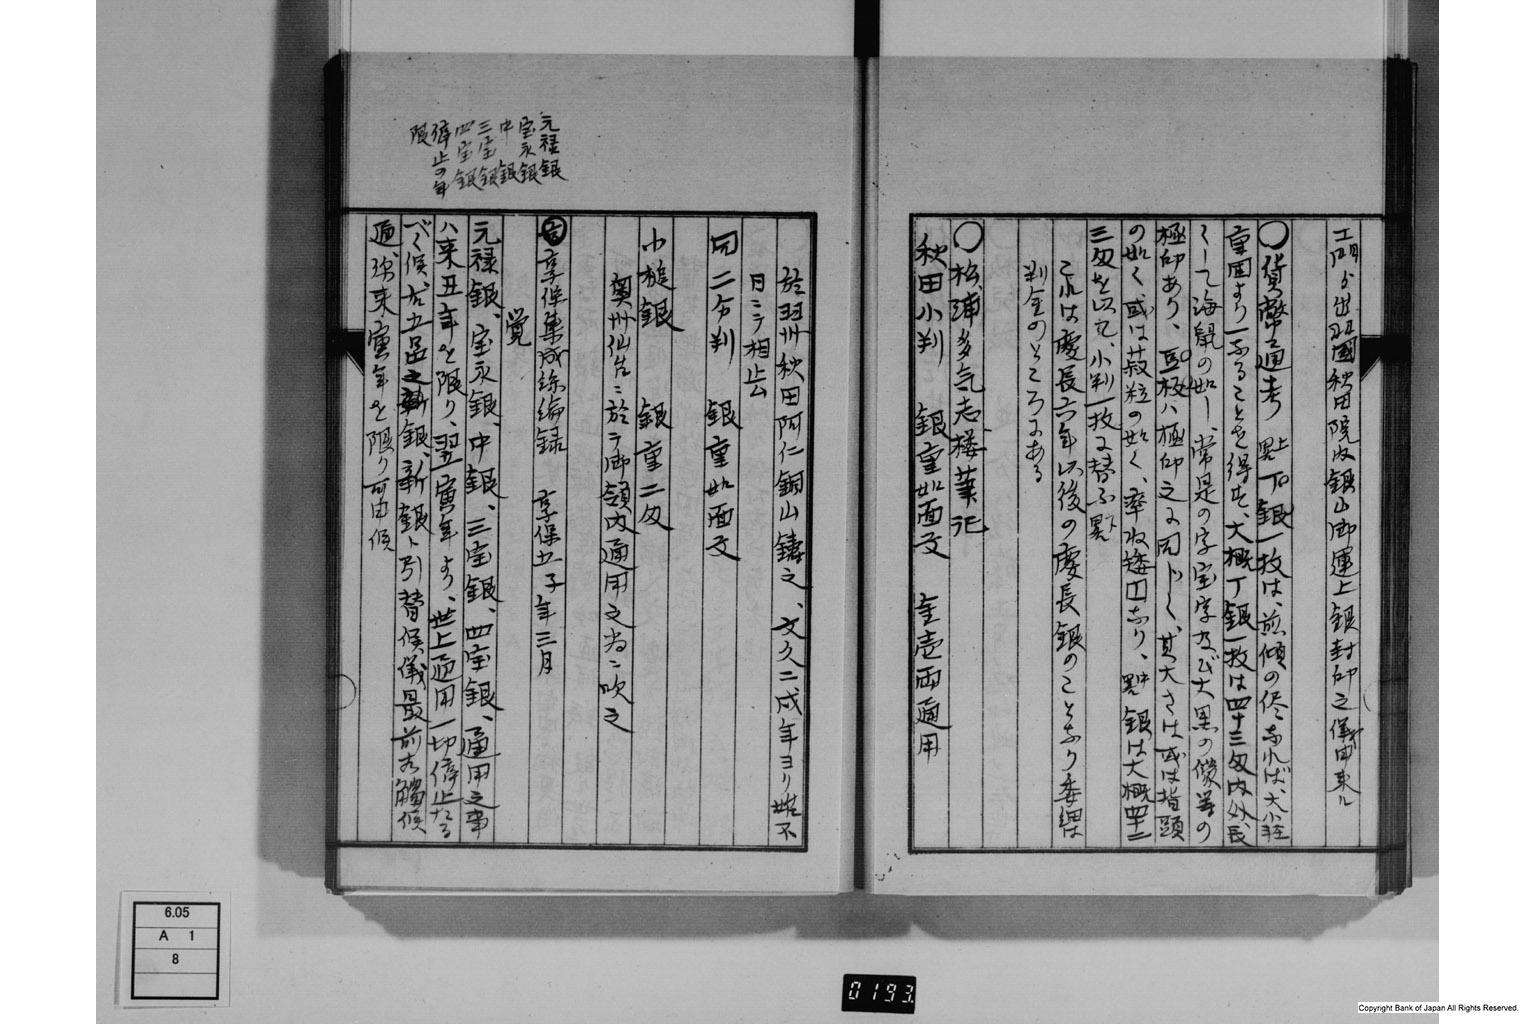 工門ゟ出羽國秋田院内銀山御運上銀封印之儀申来ル
〇貨幣通考 點上丁銀一枚は、前傾の侭なれば、大小軽
重固より一なることを得ず、大概丁銀一枚は四十三匁内外、長
くして海鼠の如し、常是の字宝字及び大黒の像等の
極印あり、豆板ハ極印之に同じく、其大さは或は指頭
の如く或は菽粒の如く、率ね矮圓なり、點中銀は大概四十二
三匁を以て、小判一枚に替ふ點下
これは慶長六年以後の慶長銀のことなり委細は
判金のところにある
〇松浦多気志楼筆記
秋田小判 銀重如面文 金壱両通用
於羽州秋田阿仁銅山鋳之、文久二戌年ヨリ
日ニテ相止ム
同二分判 銀重如面文
小槌銀 銀重二匁
奥州仙台ニ於テ御領内通用之為ニ吹之
享保集成絲綸録 享保五子年三月
覚
元禄銀、宝永銀、中銀、三宝銀、四宝銀、通用之事
ハ来丑年を限り、翌寅年より、世上通用一切停止たる
べく候、右五品之新銀、新銀ト引替候儀、最前相觸候
通、弥来寅年を限り可申候
元禄銀
宝永銀
中銀
三宝銀
四宝銀
停止の年
限
6.05
A 1
8
0193
Copyright Bank of Japan All Rights Reserved.